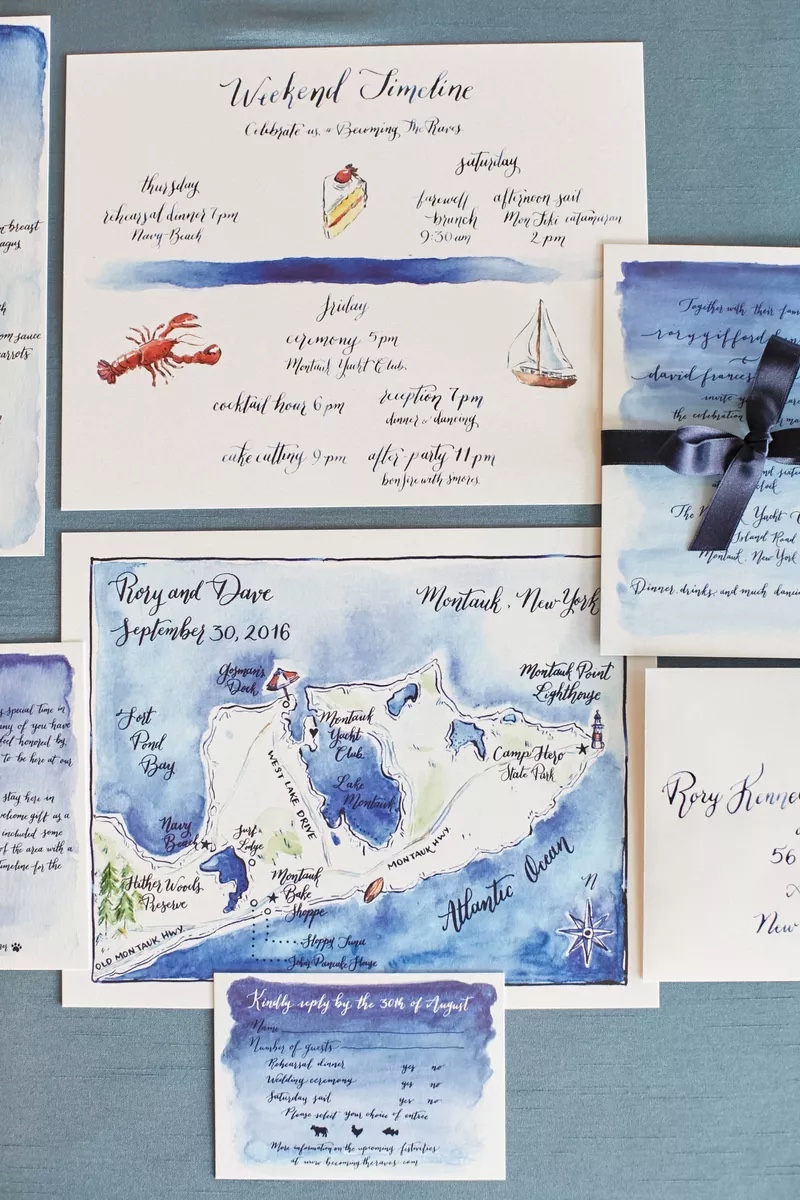 Weekend Timeline
Celebrate us, a Becoming The Raves
thursday
rehearsal dinner 7pm
Navy Beach
saturday
farewell brunch
9:30 am
afternoon sail
Mon Tiki catamaran
2 pm
friday
ceremony 5pm
Montauk Yacht Club.
cocktail hour 6 pm
reception 7pm
dinner & dancing
cake cutting 9pm
after-party 11pm
bonfire with s'mores
breast
sauce
Together with their
rory gifford
david frances
invite
the celebration
clock
The Yacht
Island Road
Montauk, New York
Dinner, drinks, and much
Rory and Dave
September 30, 2016
Montauk, New York
Gosman's Dock
Montauk Point Lighthouse
Fort Pond Bay
Montauk Yacht Club
Camp Hero State Park
WEST LAKE DRIVE
Lake Montauk
Navy Beach
Surf Lodge
MONTAUK HWY.
Hither Woods Preserve
Montauk Bake Shoppe
Atlantic Ocean
N
OLD MONTAUK HWY.
Sloppy Tuna
Johns Pancake House
special time in
any of you have
feel honored by
to be here at our
stay here in
welcome gift as a
included some
of the area with a
timeline for the
Rory
56
New
Kindly reply by the 30th of August
Name
Number of guests
Rehearsal dinner yes no
Wedding ceremony yes no
Saturday sail yes no
Please select your choice of entrée
More information on the upcoming festivities
at www.becomingtheraves.com